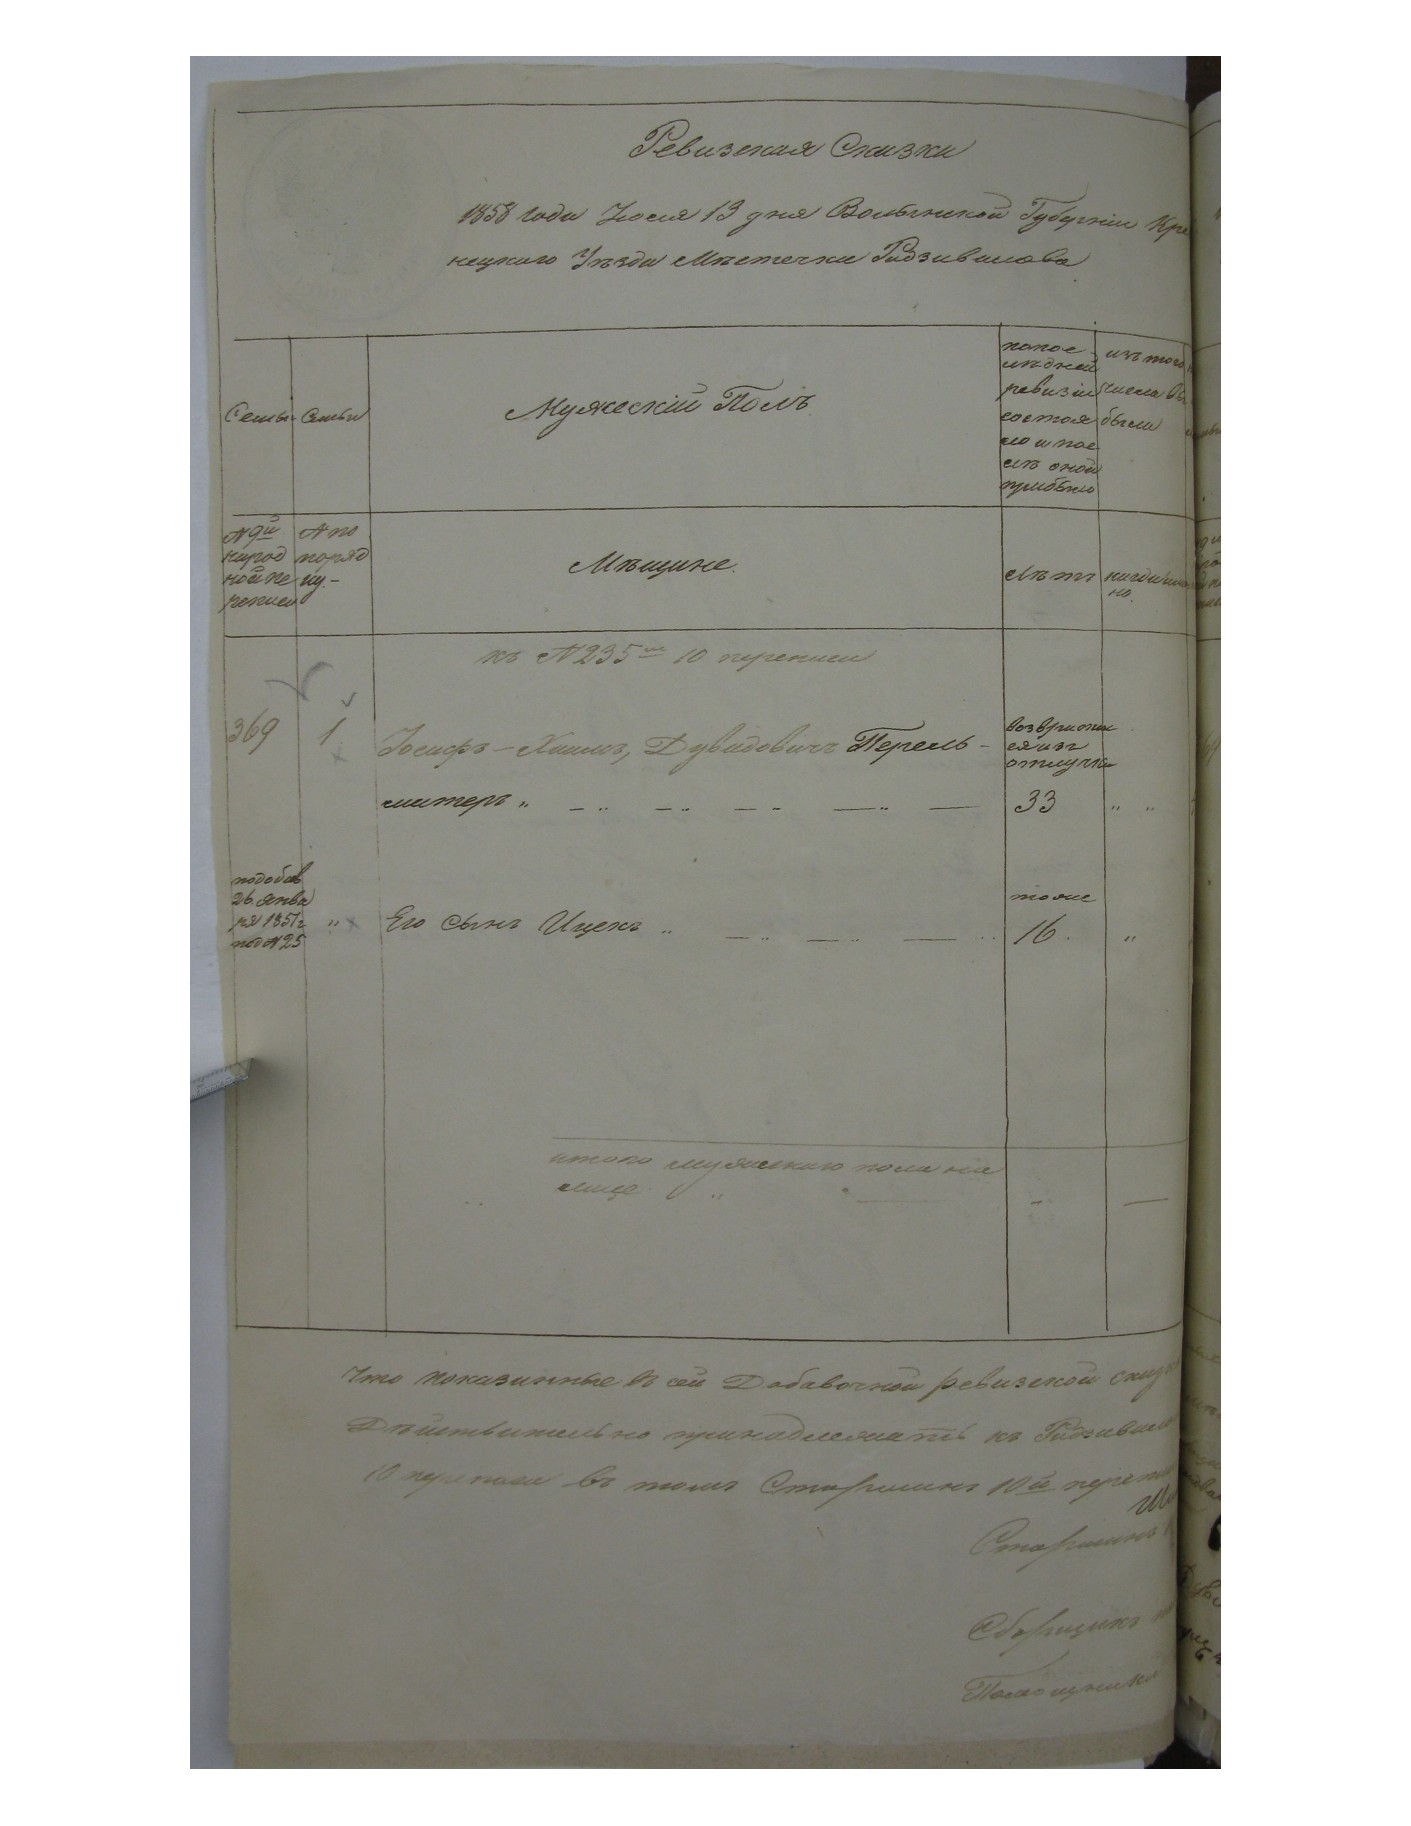 Ревизская Сказка
1858 года Июля 13 дня Волынской Губерніи Кре
нецкого Уѣзда Мѣстечка Радзивилова
Семьи
Семьи
Мужескій Полъ
попос-
лѣдней
ревизіи
состоя
ло и пос
лѣ оной
прибыло
изъ того
числа вы
были
№ 9й
народ
ной пе
реписи
№ по
поряд
ку.-
Мѣщане.
Лѣтъ
когда имен
но.
къ №235му 10 переписи
369
1
Іосифъ-Хаимъ, Дувидовичъ Перель-
мутеръ „
возвратил
ся изъ
отлучки
33
подобав
26 Янва
ря 1851 г
под №25
Его сынъ Ицекъ „
тоже
16.
итого мужескаго пола на
лице
Что показанные въ сей Добавочной ревизской сказ
Дѣйствительно принадлежатъ къ Радзивил
10 переписи въ томъ Старшина 10й переписи
Старшина
Сборщикъ
Помощникъ